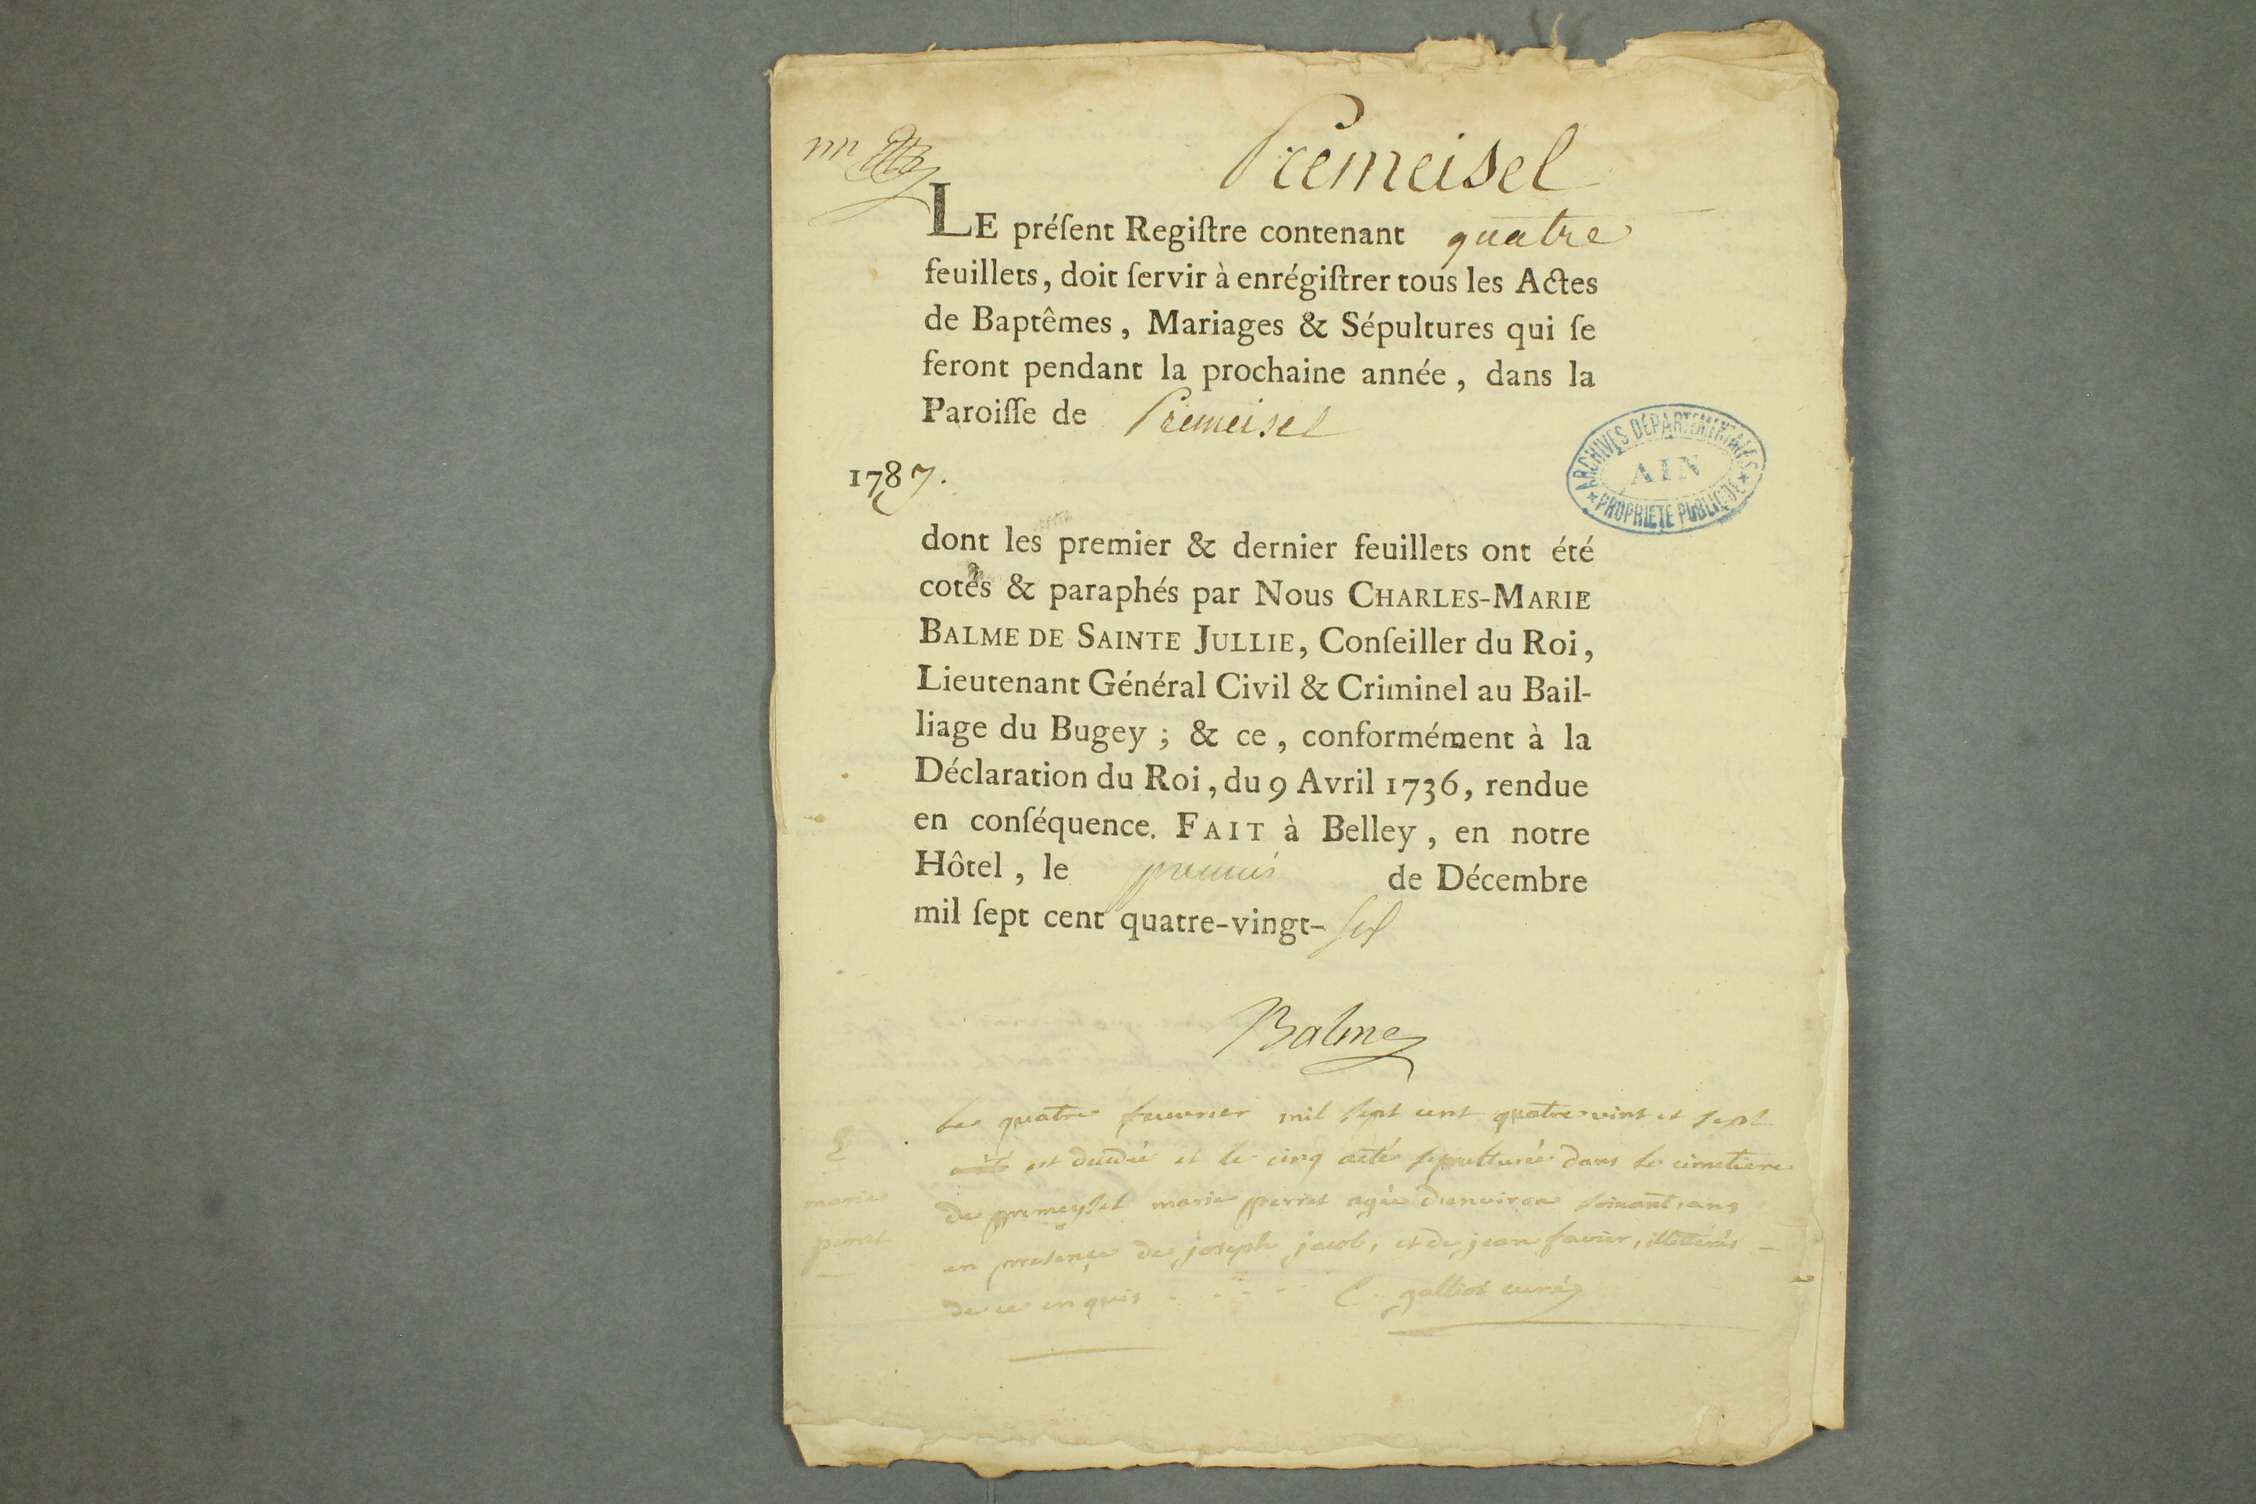 Premeisel
LE préſent Regiſtre contenant quatre
feuillets, doit ſervir à enrégiſtrer tous les Actes
de Baptêmes, Mariages & Sépultures qui ſe
feront pendant la prochaine année, dans la
Paroiſſe de Premeisel
1787.
ARCHIVES DÉPARTEMENTALES
AIN
* PROPRIÉTÉ PUBLIQUE *
dont les premier & dernier feuillets ont été
cotés & paraphés par Nous CHARLES-MARIE
BALME DE SAINTE JULLIE, Conſeiller du Roi,
Lieutenant Général Civil & Criminel au Bail-
liage du Bugey ; & ce, conformément à la
Déclaration du Roi, du 9 Avril 1736, rendue
en conſéquence. FAIT à Belley, en notre
Hôtel, le premier de Décembre
mil ſept cent quatre-vingt-six
Balme
Le quatre fevrier mil sept cent quatre vint et sept
est décédée et le cinq a été sepulturée dans le cimetiere
de premeysel marie perret agée d'environ soixant ans
en presence de joseph jacob, et de jean favier, illitérés
de ce enquis C. galliot curé
marie
perret